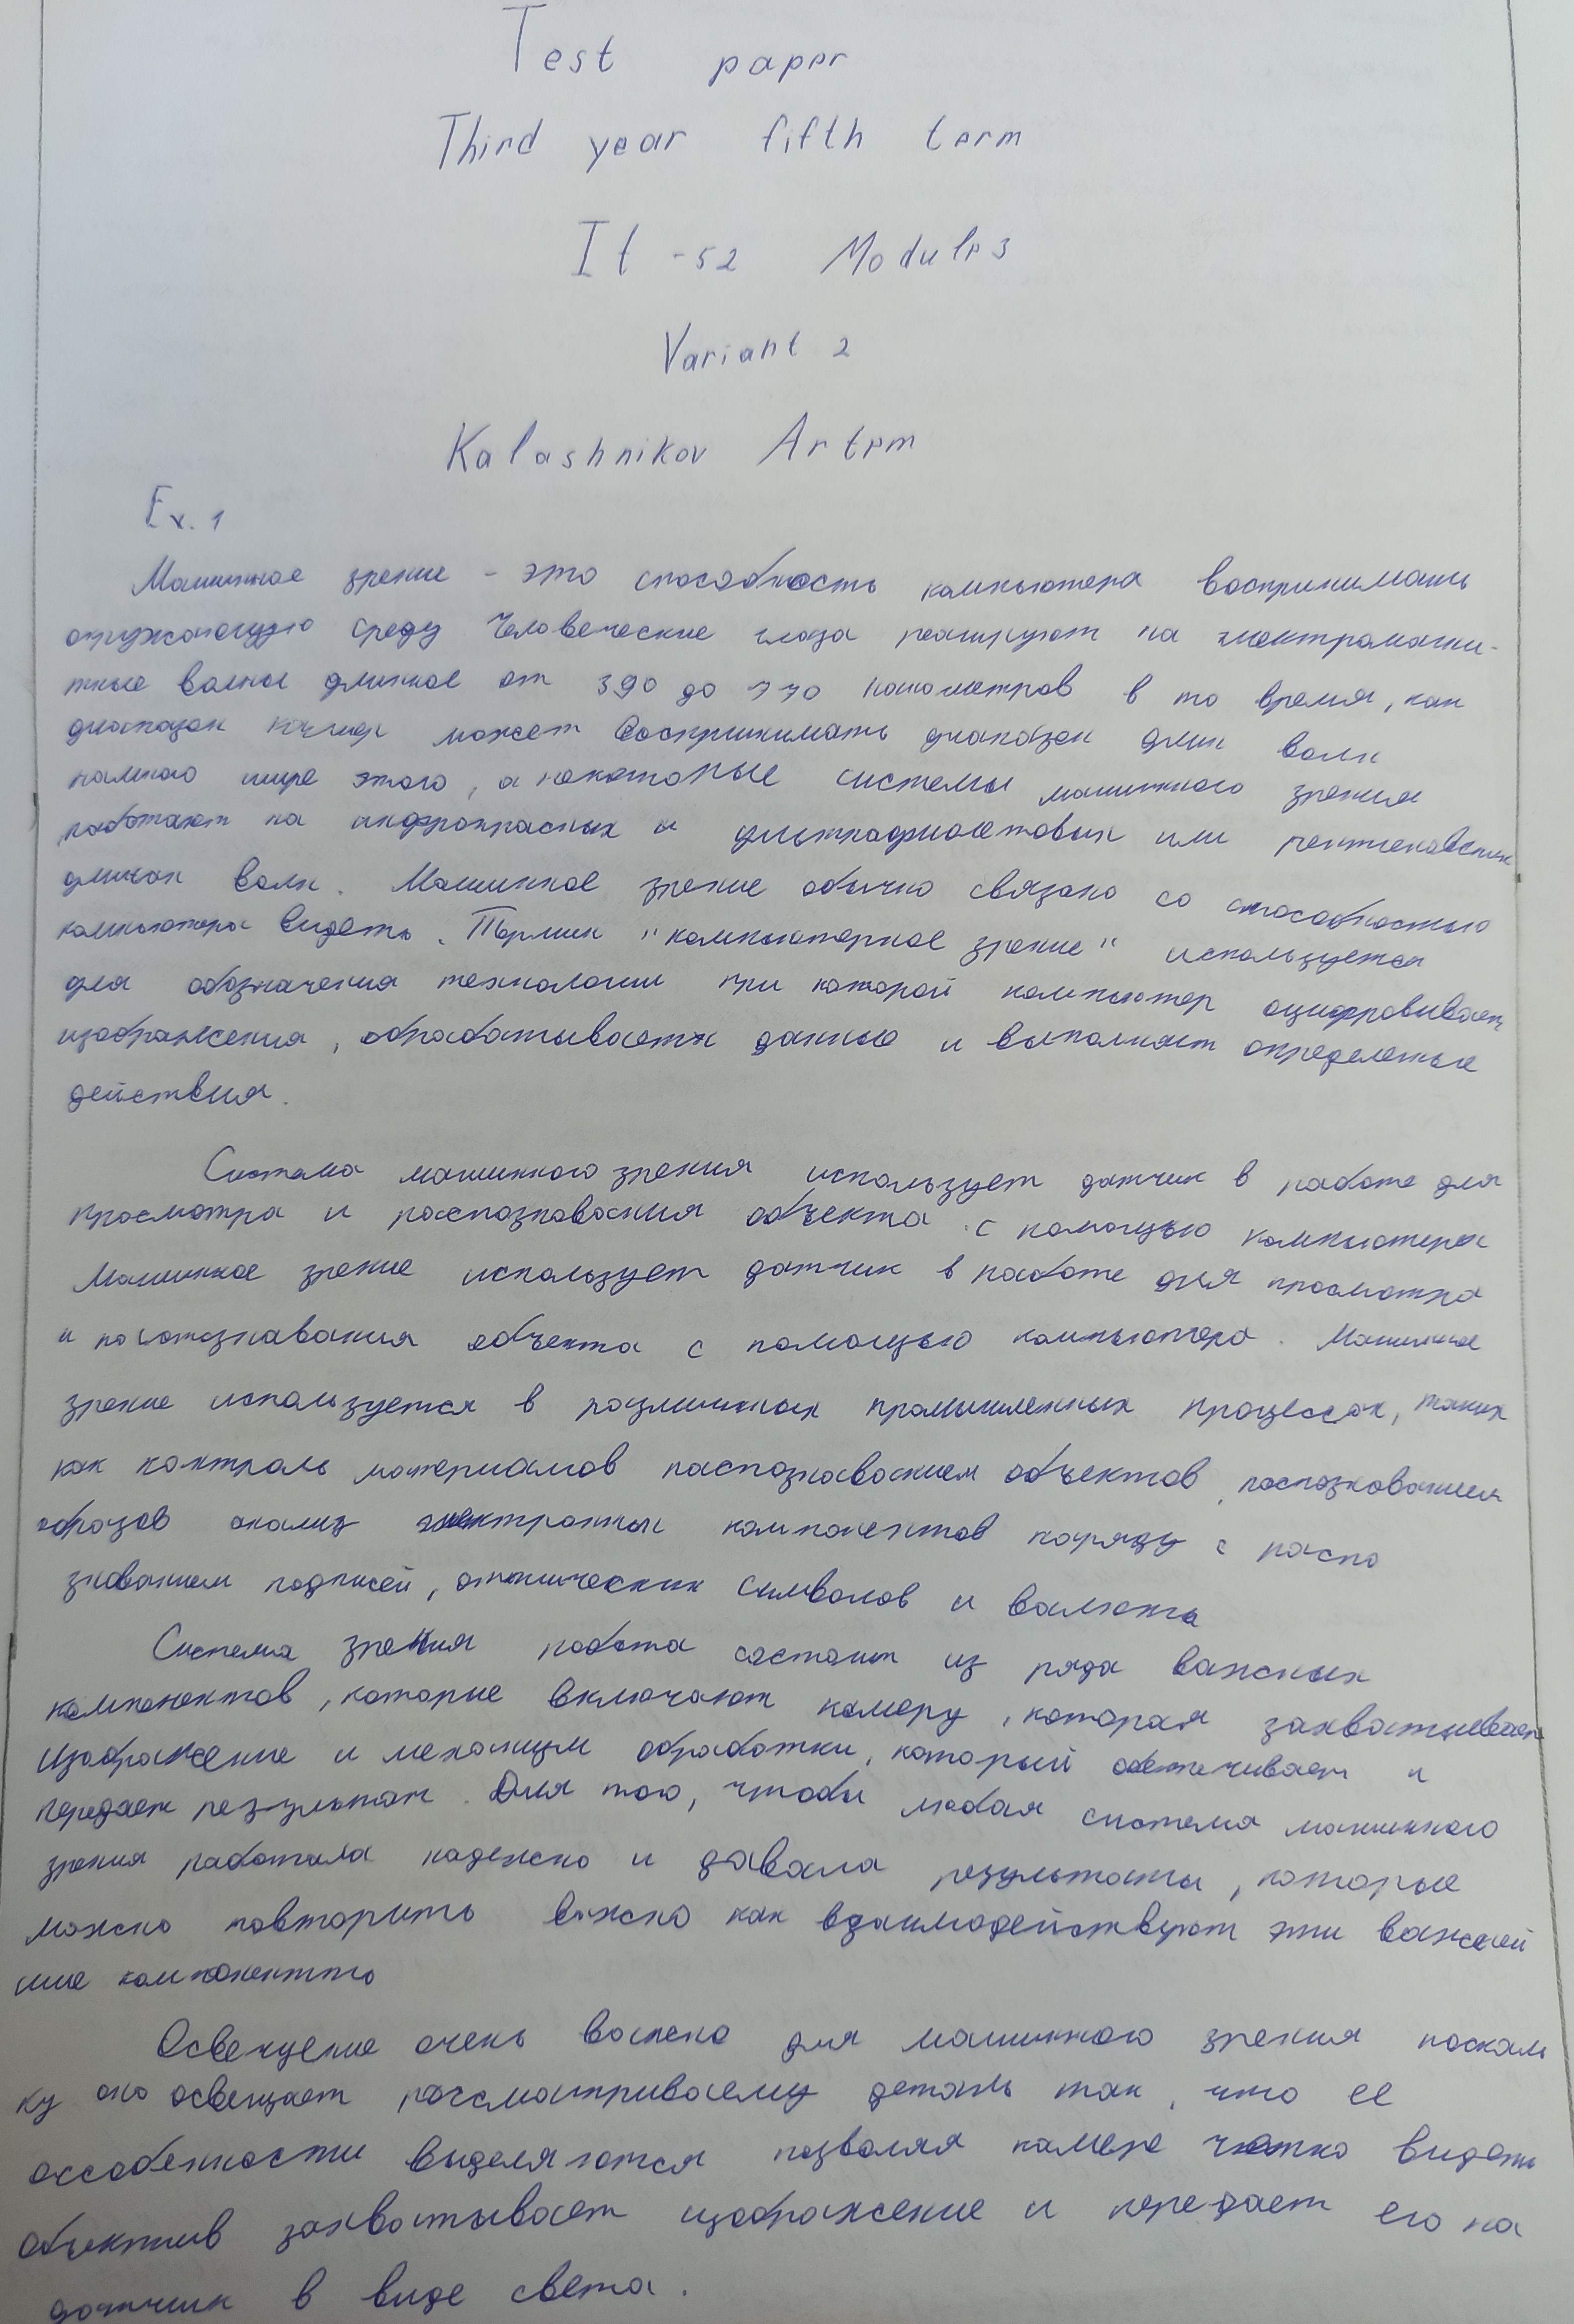 Test paper
Third year fifth term
It -52 Module 3
Variant 2
Kalashnikov Artem
Ex. 1
Машинное зрение - это способность компьютера воспринимать
окружающую среду Человеческие глаза реагируют на электромагни-
тные волны длиной от 390 до 770 нанометров в то время, как
диапазон может воспринимать диапазон длин волн
намного шире этого, а некоторые системы машинного зрения
работают на инфракрасных и ультрафиолетовых или рентгеновских
длинах волн. Машинное зрение обычно связано со способностью
компьютера видеть. Термин "компьютерное зрение" используется
для обозначения технологии при которой компьютер оцифровывает
изображения, обрабатывает данные и выполняет определенные
действия.
Система машинного зрения использует датчик в работе для
просмотра и распознавания объекта с помощью компьютера
Машинное зрение использует датчик в работе для просмотра
и распознавания объекта с помощью компьютера. Машинное
зрение используется в различных промышленных процессах, таких
как контроль материалов распознаванием объектов, распознавании
образов анализ электронных компонентов наряду с распо
знаванием подписей, оптических символов и валюты
Система зрения робота состоит из ряда важных
компонентов, которые включают камеру, которая захватывает
изображение и механизм обработки, который обеспечивает и
передает результат. Для того, чтобы любая система машинного
зрения работала надежно и давала результаты, которые
можно повторить важно как взаимодействуют эти важней
шие компоненты
Освещение очень важно для машинного зрения посколь
ку оно освещает рассматриваемую деталь так, что ее
особенности выделяются позволяя камере четко видеть
объектив захватывает изображение и передает его на
датчик в виде света.